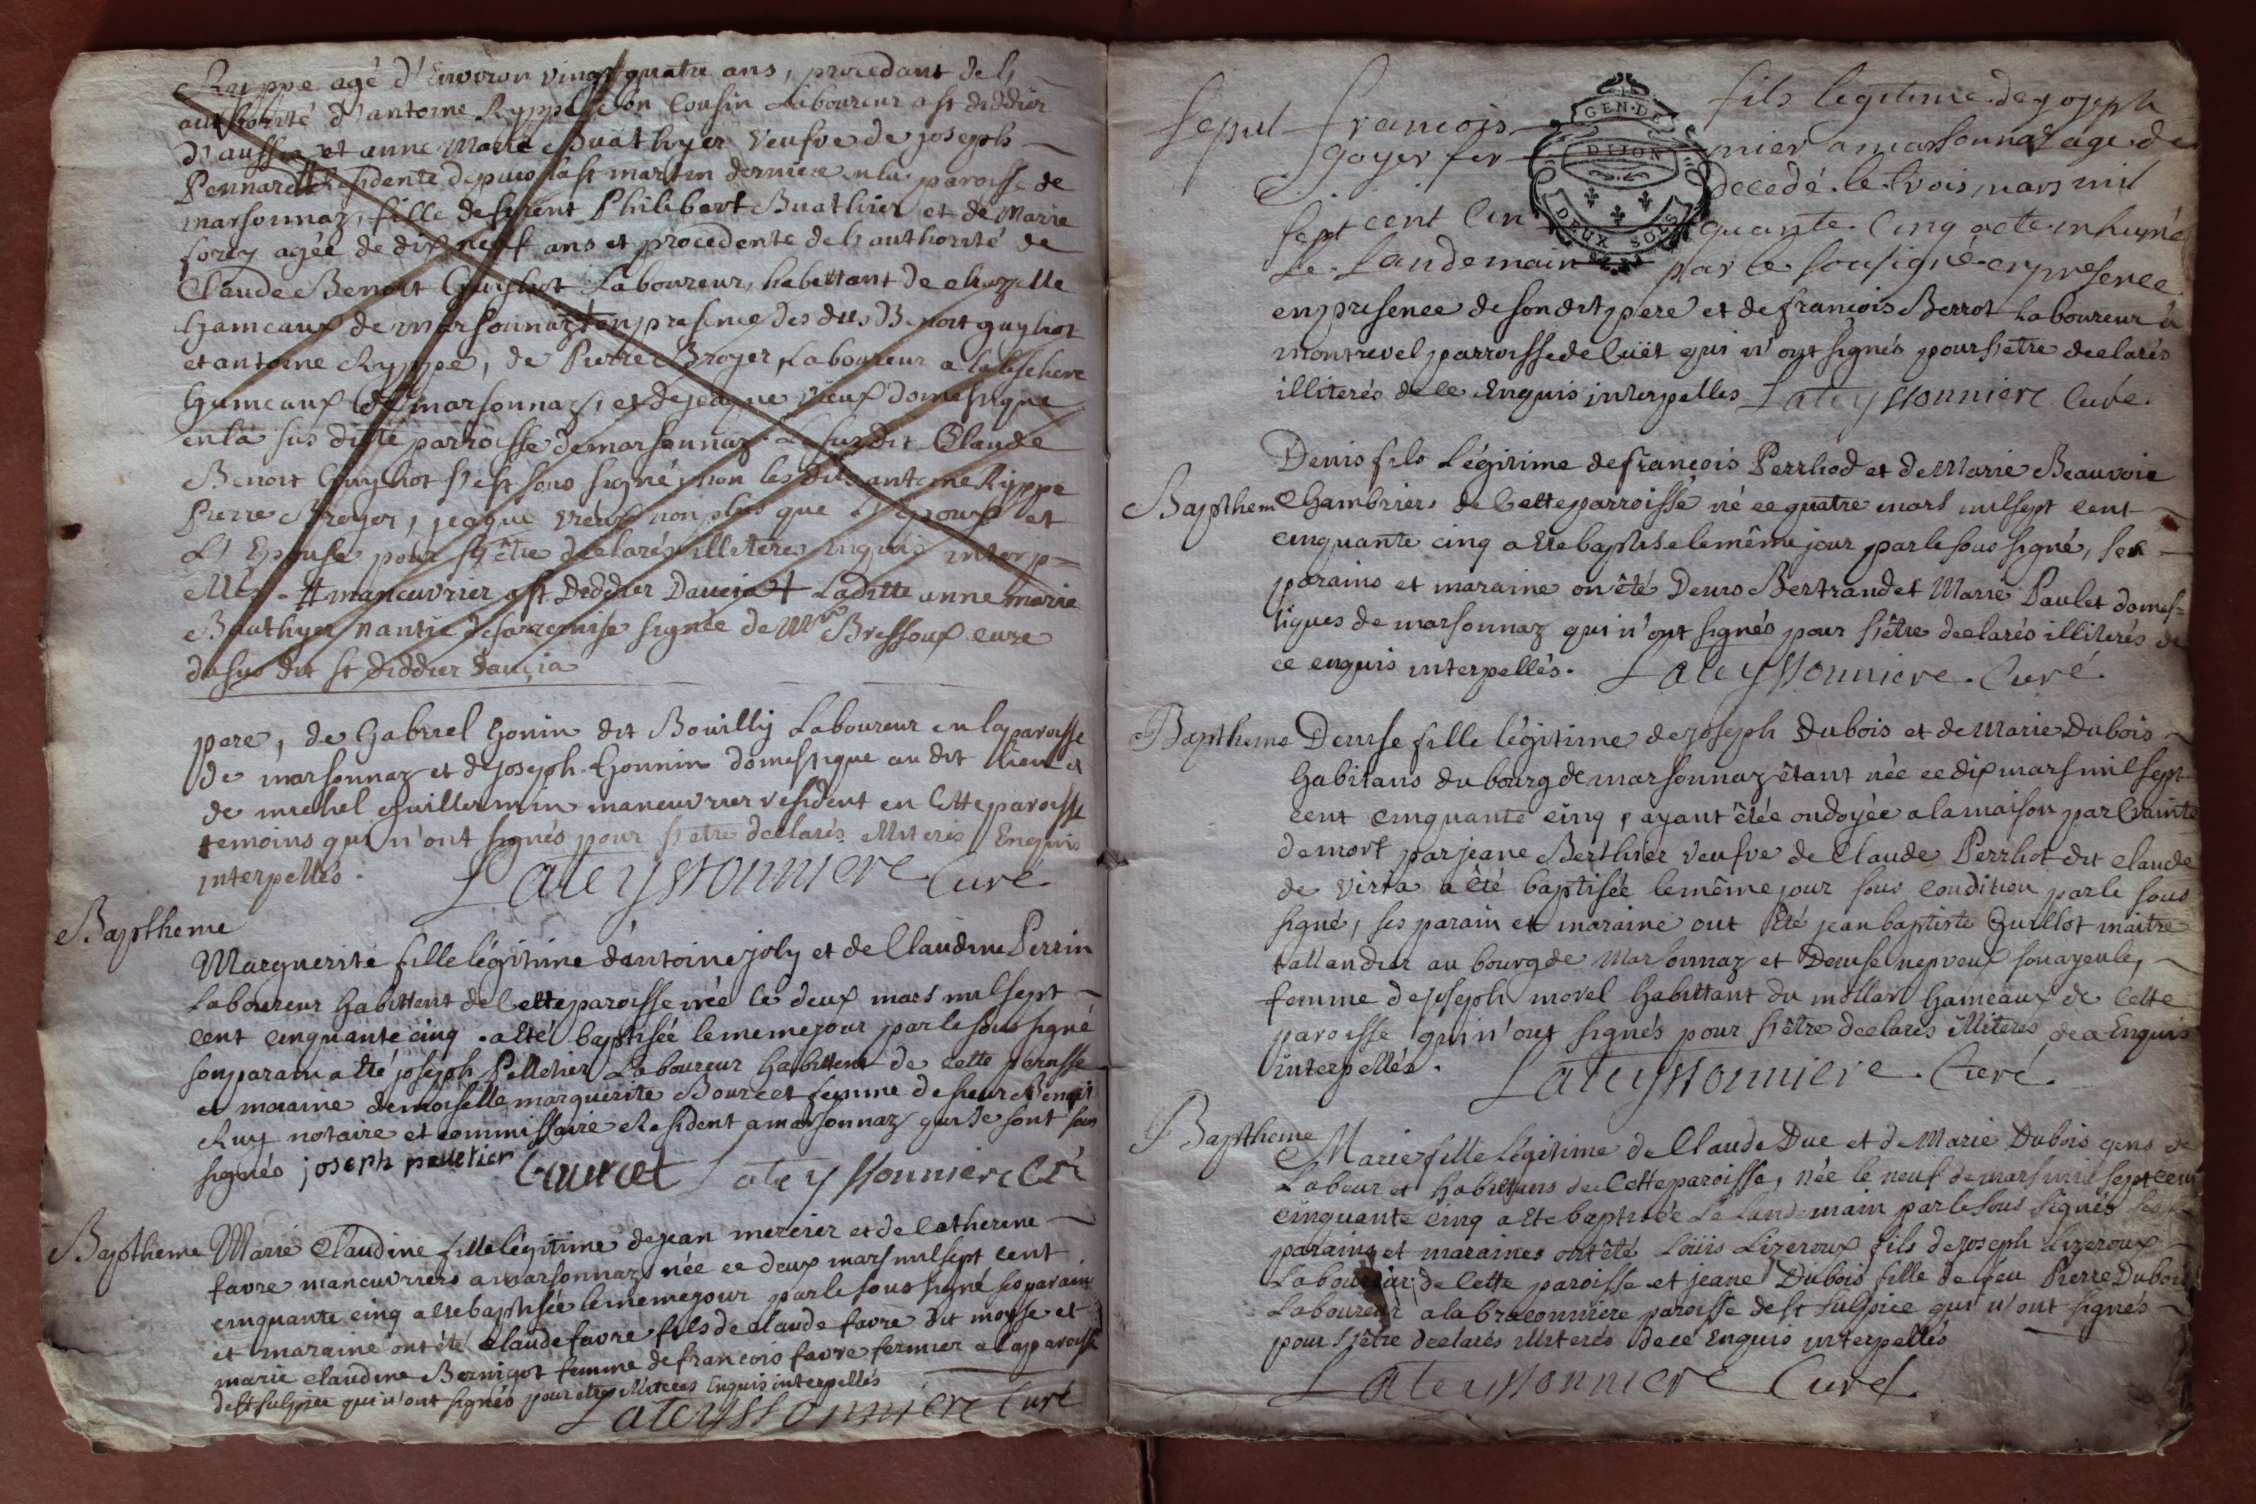 Ryppe agé d'Environ vingt quatre ans, procedant de l'
authorité d'antoine Ryppe son Cousin Laboureur a st diddier
d'aussia et anne Marie Buathyer Veufve de joseph
Pennard Residente depuis la st martin derniere en la paroisse de
marsonnaz, fille de feu Philibert Buathier et de Marie
forey agée de dix neuf ans et procedente de l'authorité de
Claude Benoit Guyhot Laboureur, habittant de chazelle
hameaux de marsonnaz en presence des dits Benoit guyhot
et antoine Ryppe, de Pierre Broyer Laboureur a la leschere
hameaux de marsonnaz, et de jeaque vieux domestique
en la sus ditte parroisse de marsonnaz. Le sus dit Claude
Benoit Guyhot s'est sous signé non les dits antoine Ryppe
Pierre Broyer, jeaque vieux non plus que L'Epoux et
L'Epouse pour s'être declarés illiteres enquis interp=
ellés. # maneuvrier a st Diddier Daussia + Laditte anne marie
Buathyer nantie de sa remise signée de Mre Bressoux cure
du sus dit st diddier dauçia
pere, de Gabriel Gonin dit Bouilly Laboureur en la paroisse
de marsonnaz et de joseph Gonnin domestique au dit lieu et
de michel Guillermin maneuvrier resident en Cette paroisse
temoins qui n'ont signés pour s'etre declarés illiterés Enquis
interpellés. Lateyssonniere Curé
Baptheme
Marguerite fille légitime d'antoine joly et de Claudine Perrin
Laboureur habittent de Cette paroisse née le deux mars mil sept
cent cinquante cinq. a été baptisée le meme jour par le sous signé
son parain a été joseph Pelletier Laboureur habittent de cette paroisse
et maraine demoiselle marguerite Bourcet femme de sieur Benoit
Ruy notaire et commissaire Resident a marsonnaz qui se sont sous
signés joseph pelletier Bourcet Lateyssonniere Cré
Baptheme Marie Claudine fille légitime de jean mercier et de Catherine
favre maneuvriers a marsonnaz née ce deux mars mil sept cent
cinquante cinq a été baptisée le meme jour par le sous signé ses parain
et maraine ont été Claude favre fils de claude favre dit moyse et
marie claudine Bernigot femme de francois favre fermier a la paroisse
de st sulpice qui n'ont signés pour etre illiteres Enquis interpellés
Lateyssonniere Curé
GEN. DE
DIJON
DEUX SOLS
sepul francois fils legitime de joseph
goyer fermier a marsonnaz age de
decedé le trois mars mil
sept cent cinquante Cinq a ete inhumé
Le Landemain par le sousigné en presence
en presence de son dit pere et de francois Berrot Laboureur a
montrevel parroisse de Cuët qui n'ont signés pour s'etre declarés
illiterés de ce Enquis interpelles Lateyssonniere Curé.
Denis fils Légitime de françois Perrhod et de Marie Beauvoie
Bapthem Chambriers de Cette parroisse né ce quatre mars mil sept cent
cinquante cinq a ete baptisé le même jour par le sous signé, ses
parains et maraine on été Denis Bertrand et Marie Paulet domes=
tiques de marsonnaz qui n'ont signés pour s'être declarés illiterés de
ce enquis interpellés. Lateyssonniere. Curé.
Baptheme Denise fille légitime de joseph Dubois et de Marie Dubois
habitans du bourg de marsonnaz étant née ce dix mars mil sept
cent cinquante cinq, ayant étée ondoyée a la maison par Crainte
de mort par jeane Berthier Veufve de Claude Perrhot dit claude
de viria a été baptisée le même jour sous condition par le sous
signé, ses parain et maraine ont été jean baptiste Guillot maitre
tallandier au bourg de Marsonnaz et Denise nepveux son ayeule,
femme de joseph morel habittant du mollar hameaux de Cette
paroisse qui n'ont signés pour s'être declarés illiteres de ce Enquis
interpellés. Lateyssonniere. Curé.
Baptheme
Marie fille légitime de Claude Duc et de Marie Dubois gens de
Labeur et habittans de Cette paroisse, née le neuf de mars mil sept cent
cinquante cinq a ete baptisée Le Landemain par le sous signés ses
parains et maraines ont été Loüis Lizeroux fils de joseph Lizeroux
Laboureur de Cette paroisse et jeane Dubois fille de feu Pierre Dubois
Laboureur a la braconniere paroisse de st sulpice qui n'ont signés
pour s'être declarés illiterés de ce Enquis interpellés
Lateyssonniere Curé